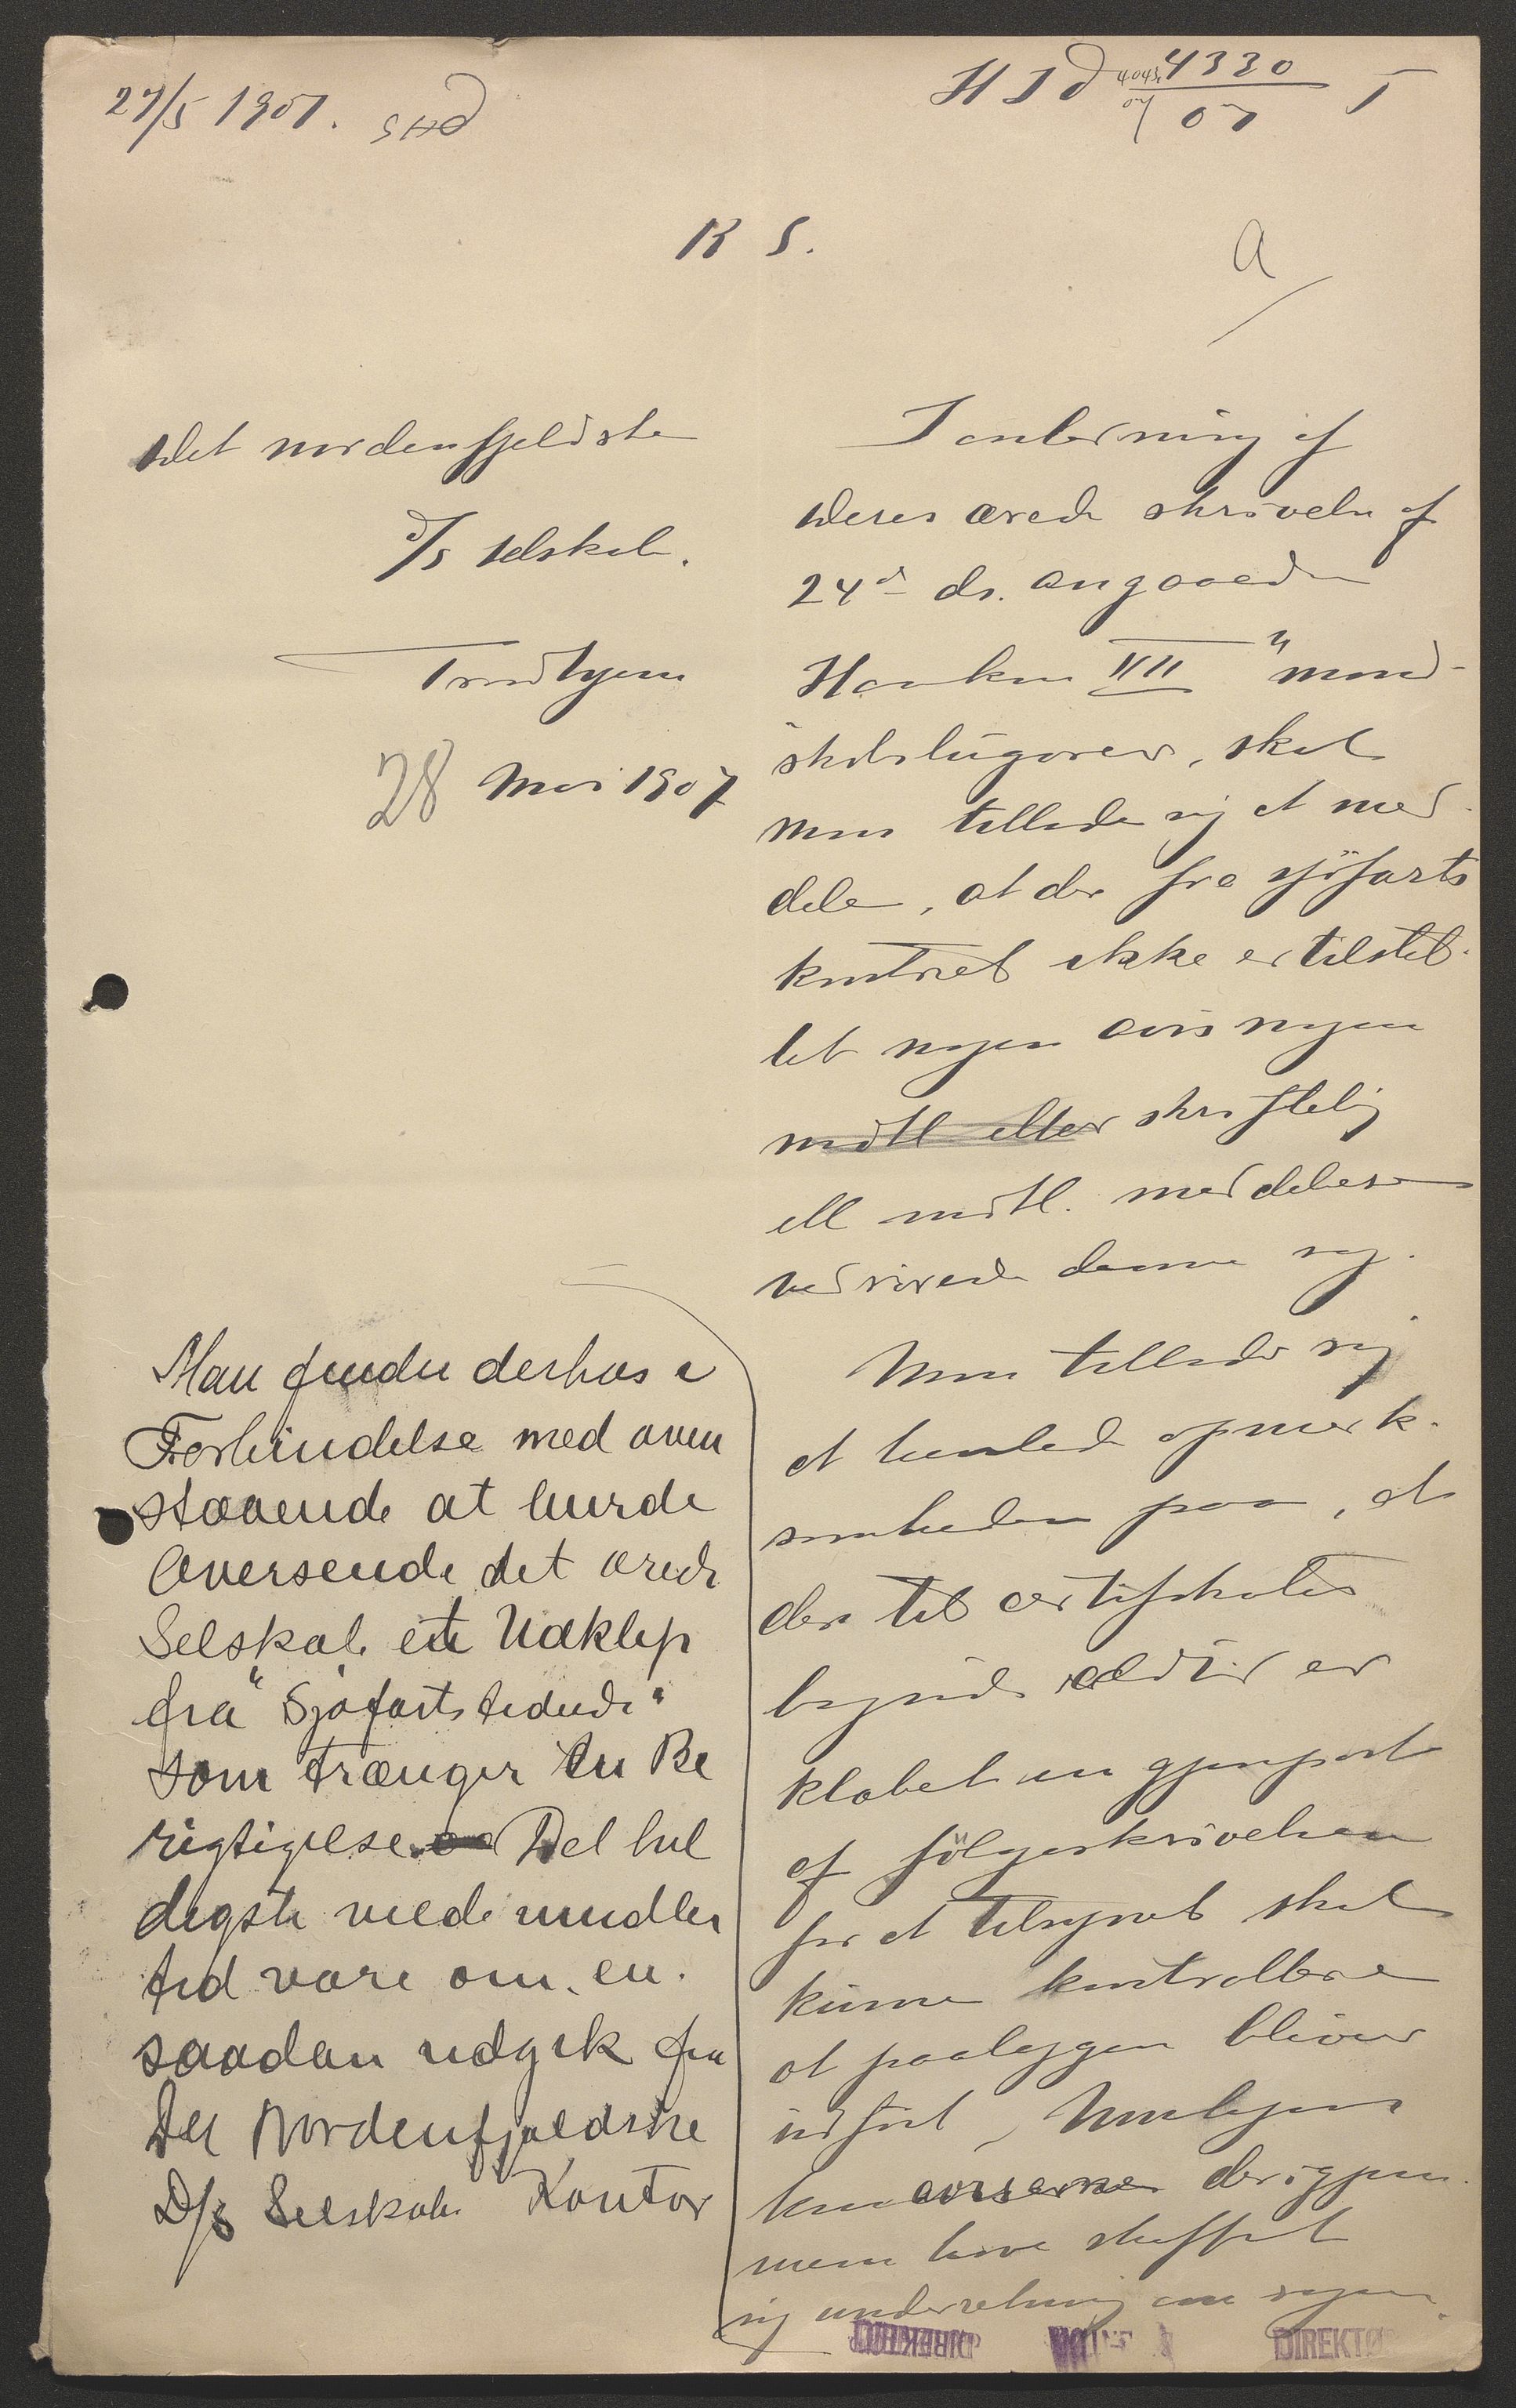 27/5 1907. SHD
H J d 4043/07 4330/07 J
K S.
a
Det nordenfjeldske
d/s selskab.
Trondhjem
28 Mai 1907
I anledning af
deres ærede skrivelse af
24de ds. angaaende
Haakon VII" mand-
skabslugarer, skal
man tillade sig at med-
dele, at der fra sjöfarts
kontoret ikke er tilstil-
let nogen avis nogen
mdtl eller skriftlig
ell mdtl. meddelelse
vedrörende denne sag.
Man tillader sig
at henlede opmærk-
somheden paa, at
der til certifikatets
bagside altid er
klæbet en gjenpart
af fölgeskrivelsen
for at tilsynet skal
kunne kontrollere
at paalæggene bliver
udfört. Muligens
kan aviserne derigjen-
nem have skaffet
sig underretning om sagen.
Man finder derhos i
Forbindelse med oven
staaende at burde
oversende det ærede
Selskab et Udklip
fra "Sjøfartstidende"
som trænger en Be
rigtigelse. Det hel
digste vilde imidler
tid være om en
saadan udgik fra
Det Nordenfjeldske
D/s Selskabs Kontor
DIREKTØR
DIREKTØ